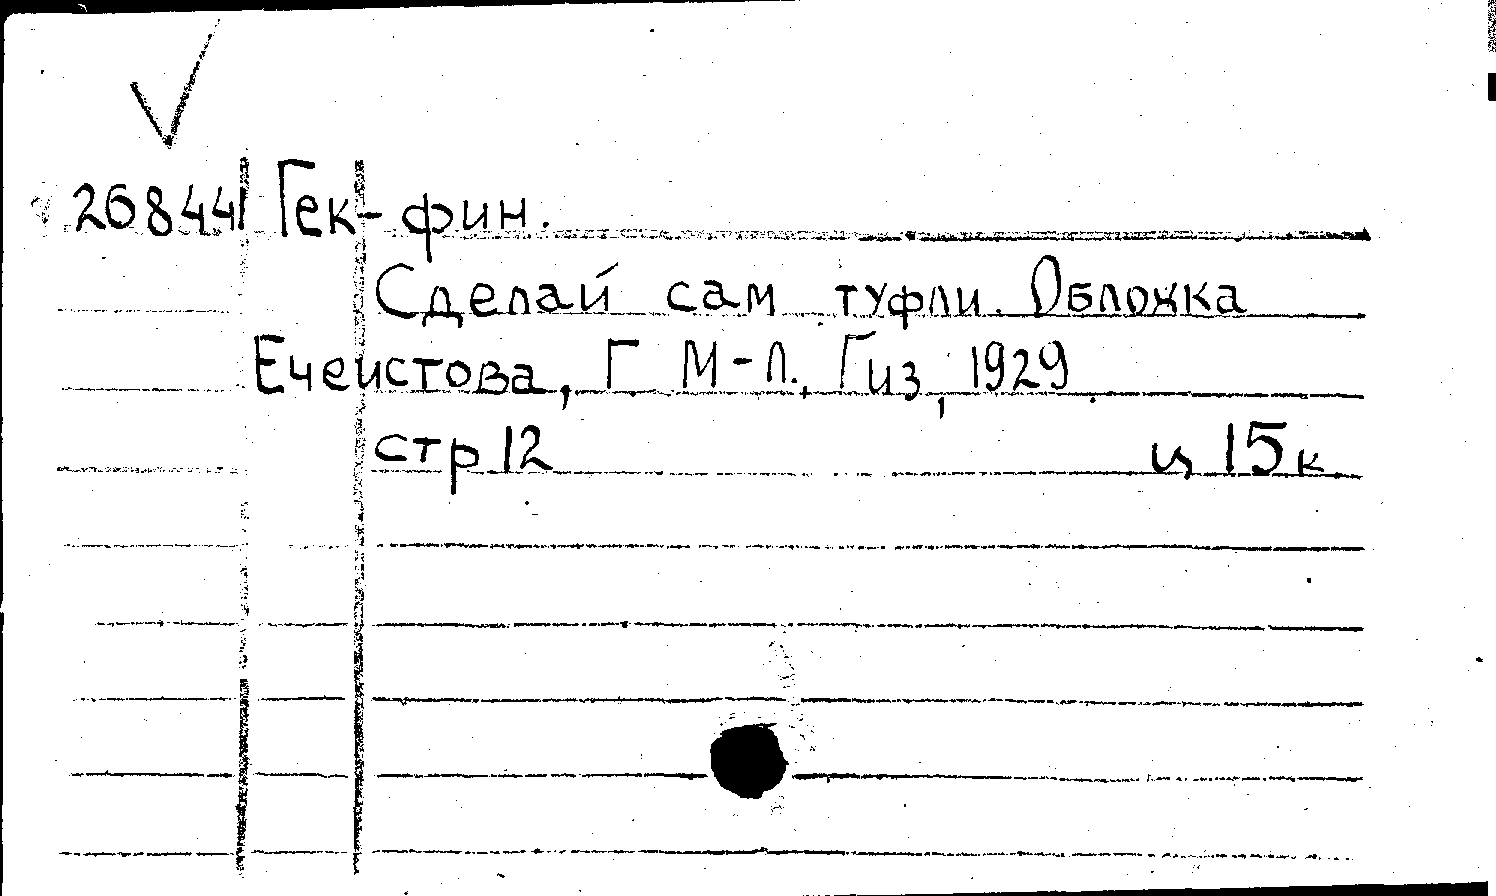 26844 Гек-фин.
Сделай сам туфли. Обложка
Ечеистова, Г М-Л., Гиз, 1929
стр 12 ц 15 к